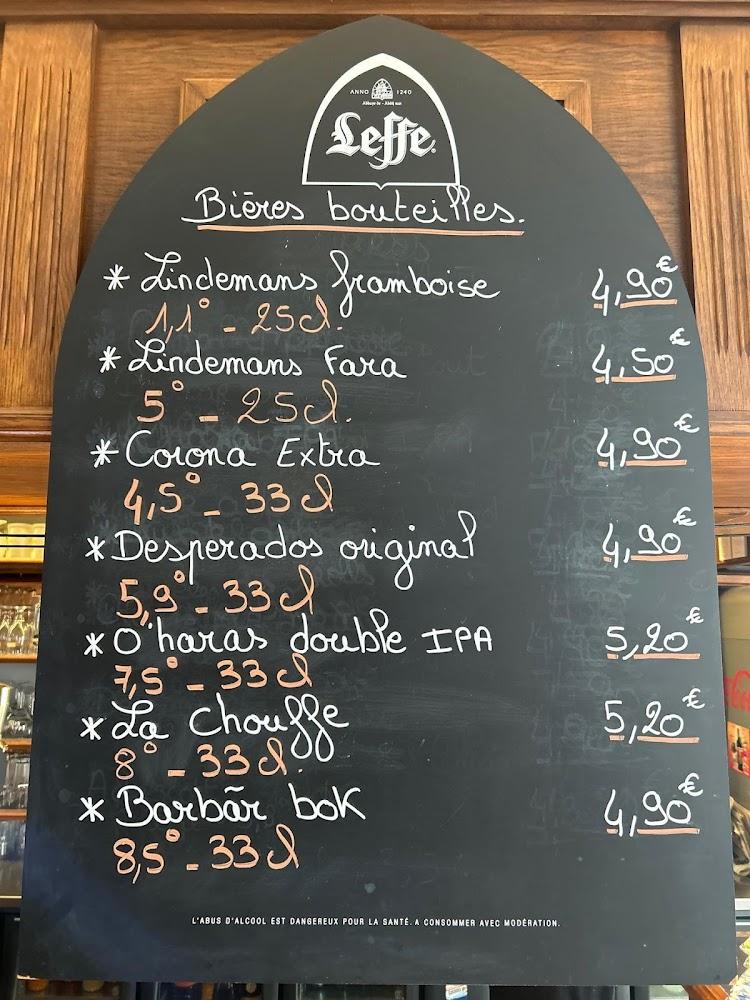 ANNO 1240
Abbaye de - Abdij van
Leffe
Bières bouteilles.
* Lindemans framboise 4,90€
1,1° - 25cl.
* Lindemans Fara 4,50€
5° - 25cl.
* Corona Extra 4,90€
4,5° - 33cl
* Desperados original 4,90€
5,9° - 33cl
* O'haras double IPA 5,20€
7,5° - 33cl
* La Chouffe 5,20€
8° - 33cl.
* Barbār bok 4,90€
8,5° - 33cl
L'ABUS D'ALCOOL EST DANGEREUX POUR LA SANTÉ. A CONSOMMER AVEC MODÉRATION.